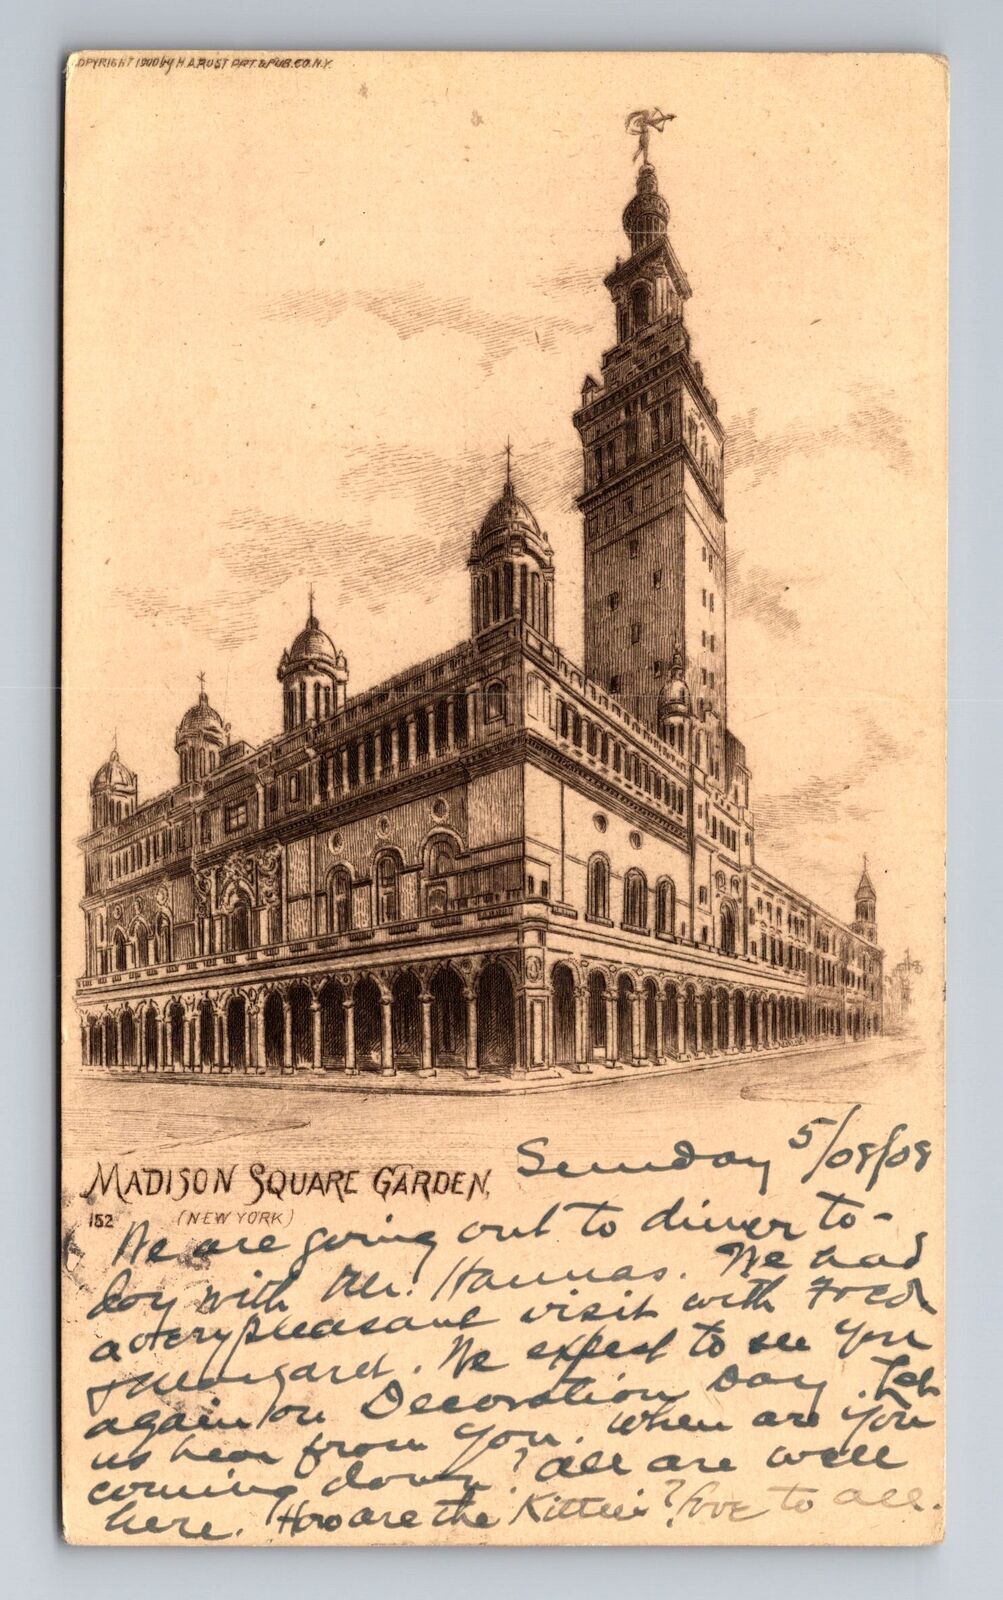 OPYRIGHT 1900 by H.A.ROST PRT. & PUB. CO. N.Y.
MADISON SQUARE GARDEN,
152 (NEW YORK)
Sunday 5/08/08
We are going out to dinner to-
day with Mr. Hannas. We had
a very pleasant visit with Fred
& Margaret. We expect to see you
again on Decoration Day. Let
us hear from you. When are you
coming down? All are well
here. How are the Kitties? Love to all.